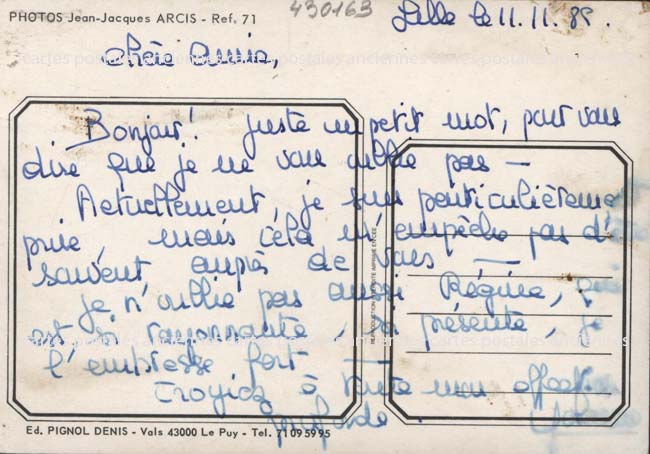 PHOTOS Jean-Jacques ARCIS - Ref. 71
430163
Lille le 11.11.89.
chère Amie,
Bonjour! juste un petit mot, pour vous
dire que je ne vous oublie pas —
Actuellement, je suis particulièrement
prise, mais cela m'empêche pas d'
souvent auprès de vous —
je n'oublie pas aussi Régine,
est si rayonnante, présente, je
l'embrasse fort —
Croyez à toute mon
profonde.
REPRODUCTION INTERDITE
Ed. PIGNOL DENIS - Vals 43000 Le Puy - Tel. 71095995
cartes postales anciennes cartes postales anciennes cartes postales anciennes
cartes postales anciennes cartes postales anciennes cartes postales anciennes